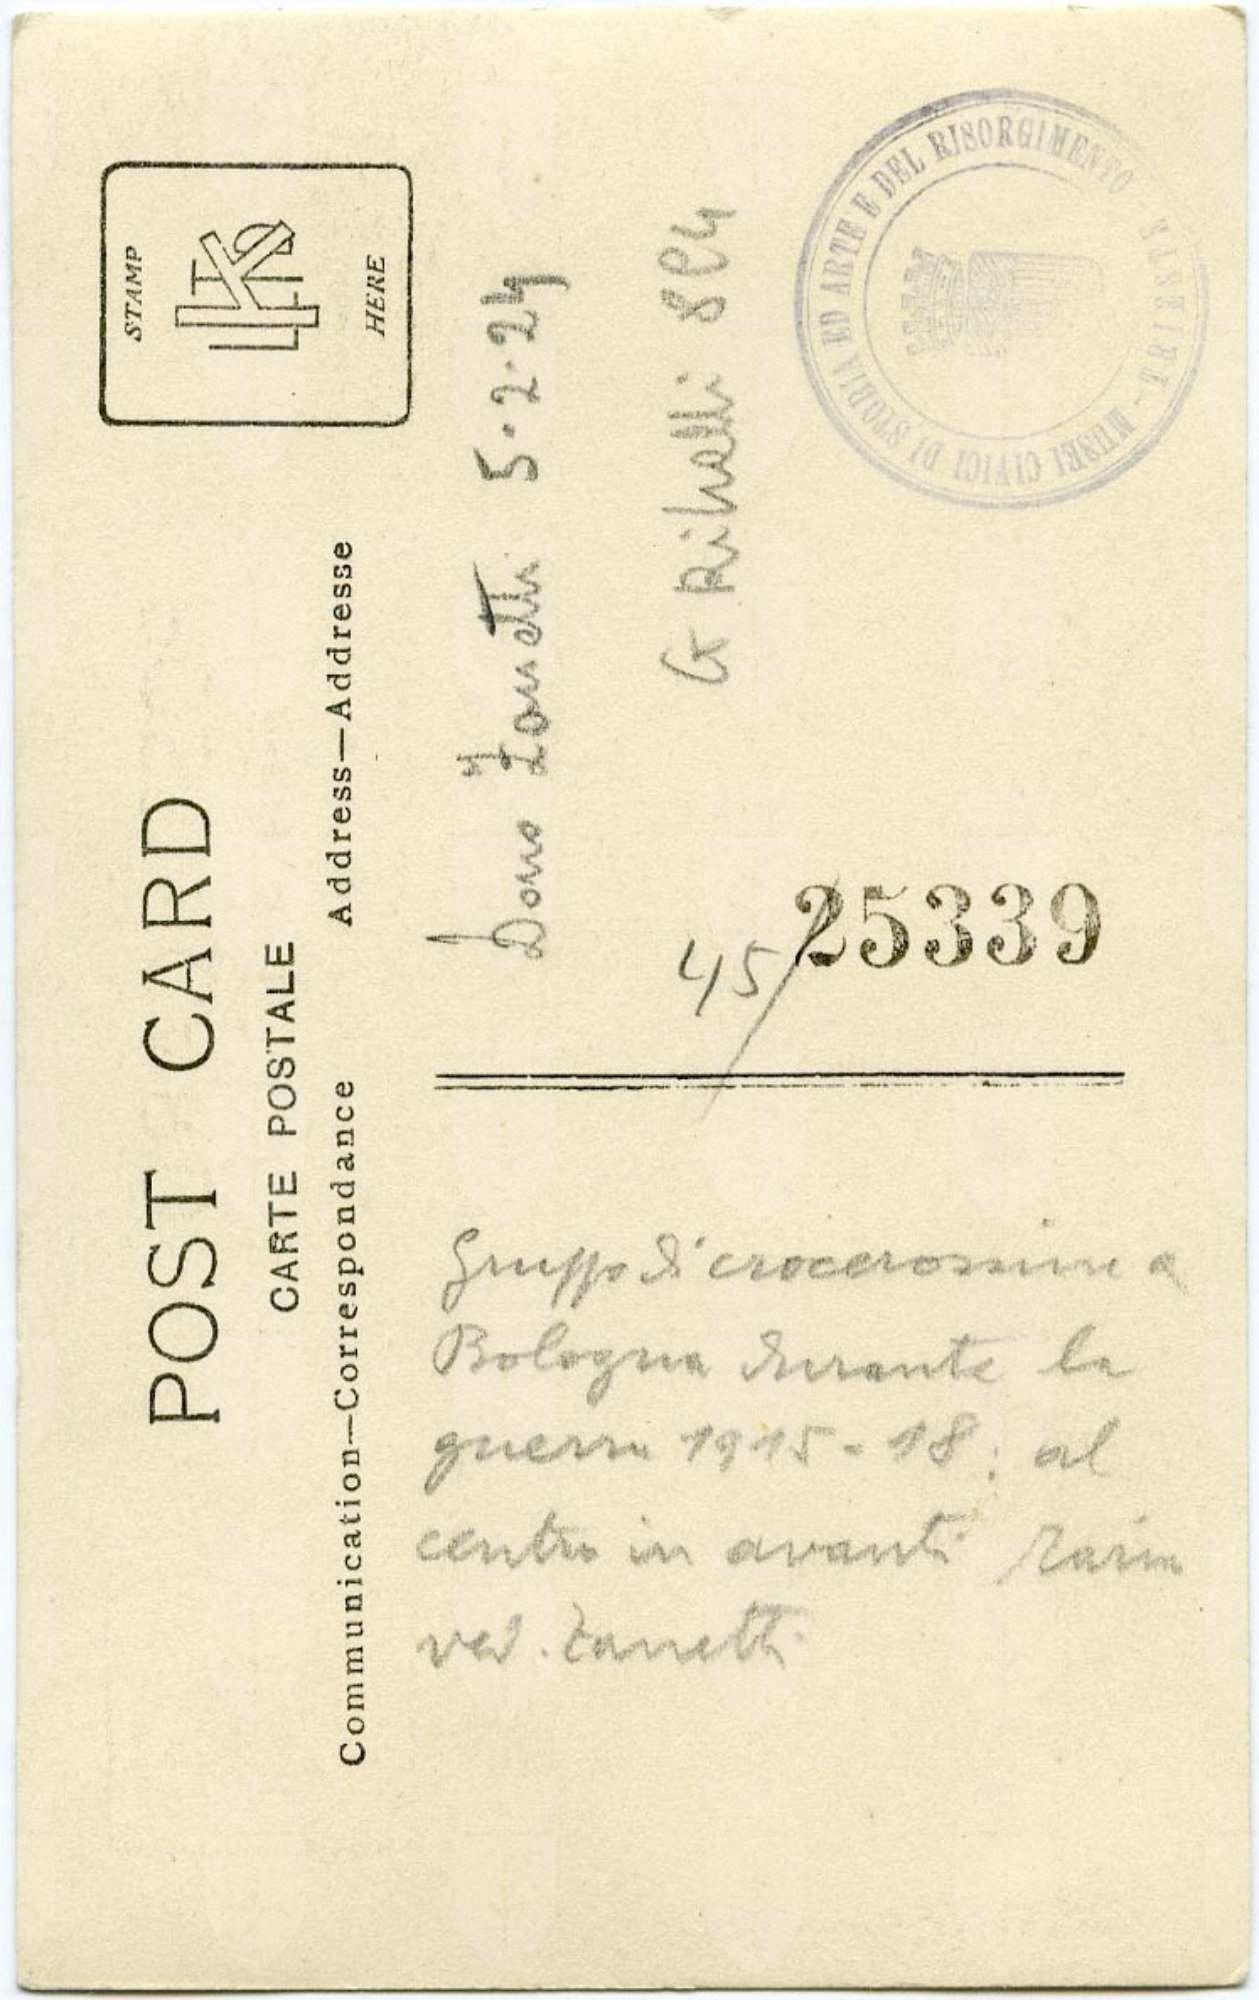 POST CARD
CARTE POSTALE
Communication—Correspondance
Address—Addresse
STAMP
HERE
Dono Zanetti 5.2.24
G
MUSEI CIVICI DI STORIA ED ARTE E DEL RISORGIMENTO - TRIESTE
45/25339
Gruppo di crocerossine a
Bologna durante la
guerra 1915-18: al
centro in avanti
ved. Zanetti